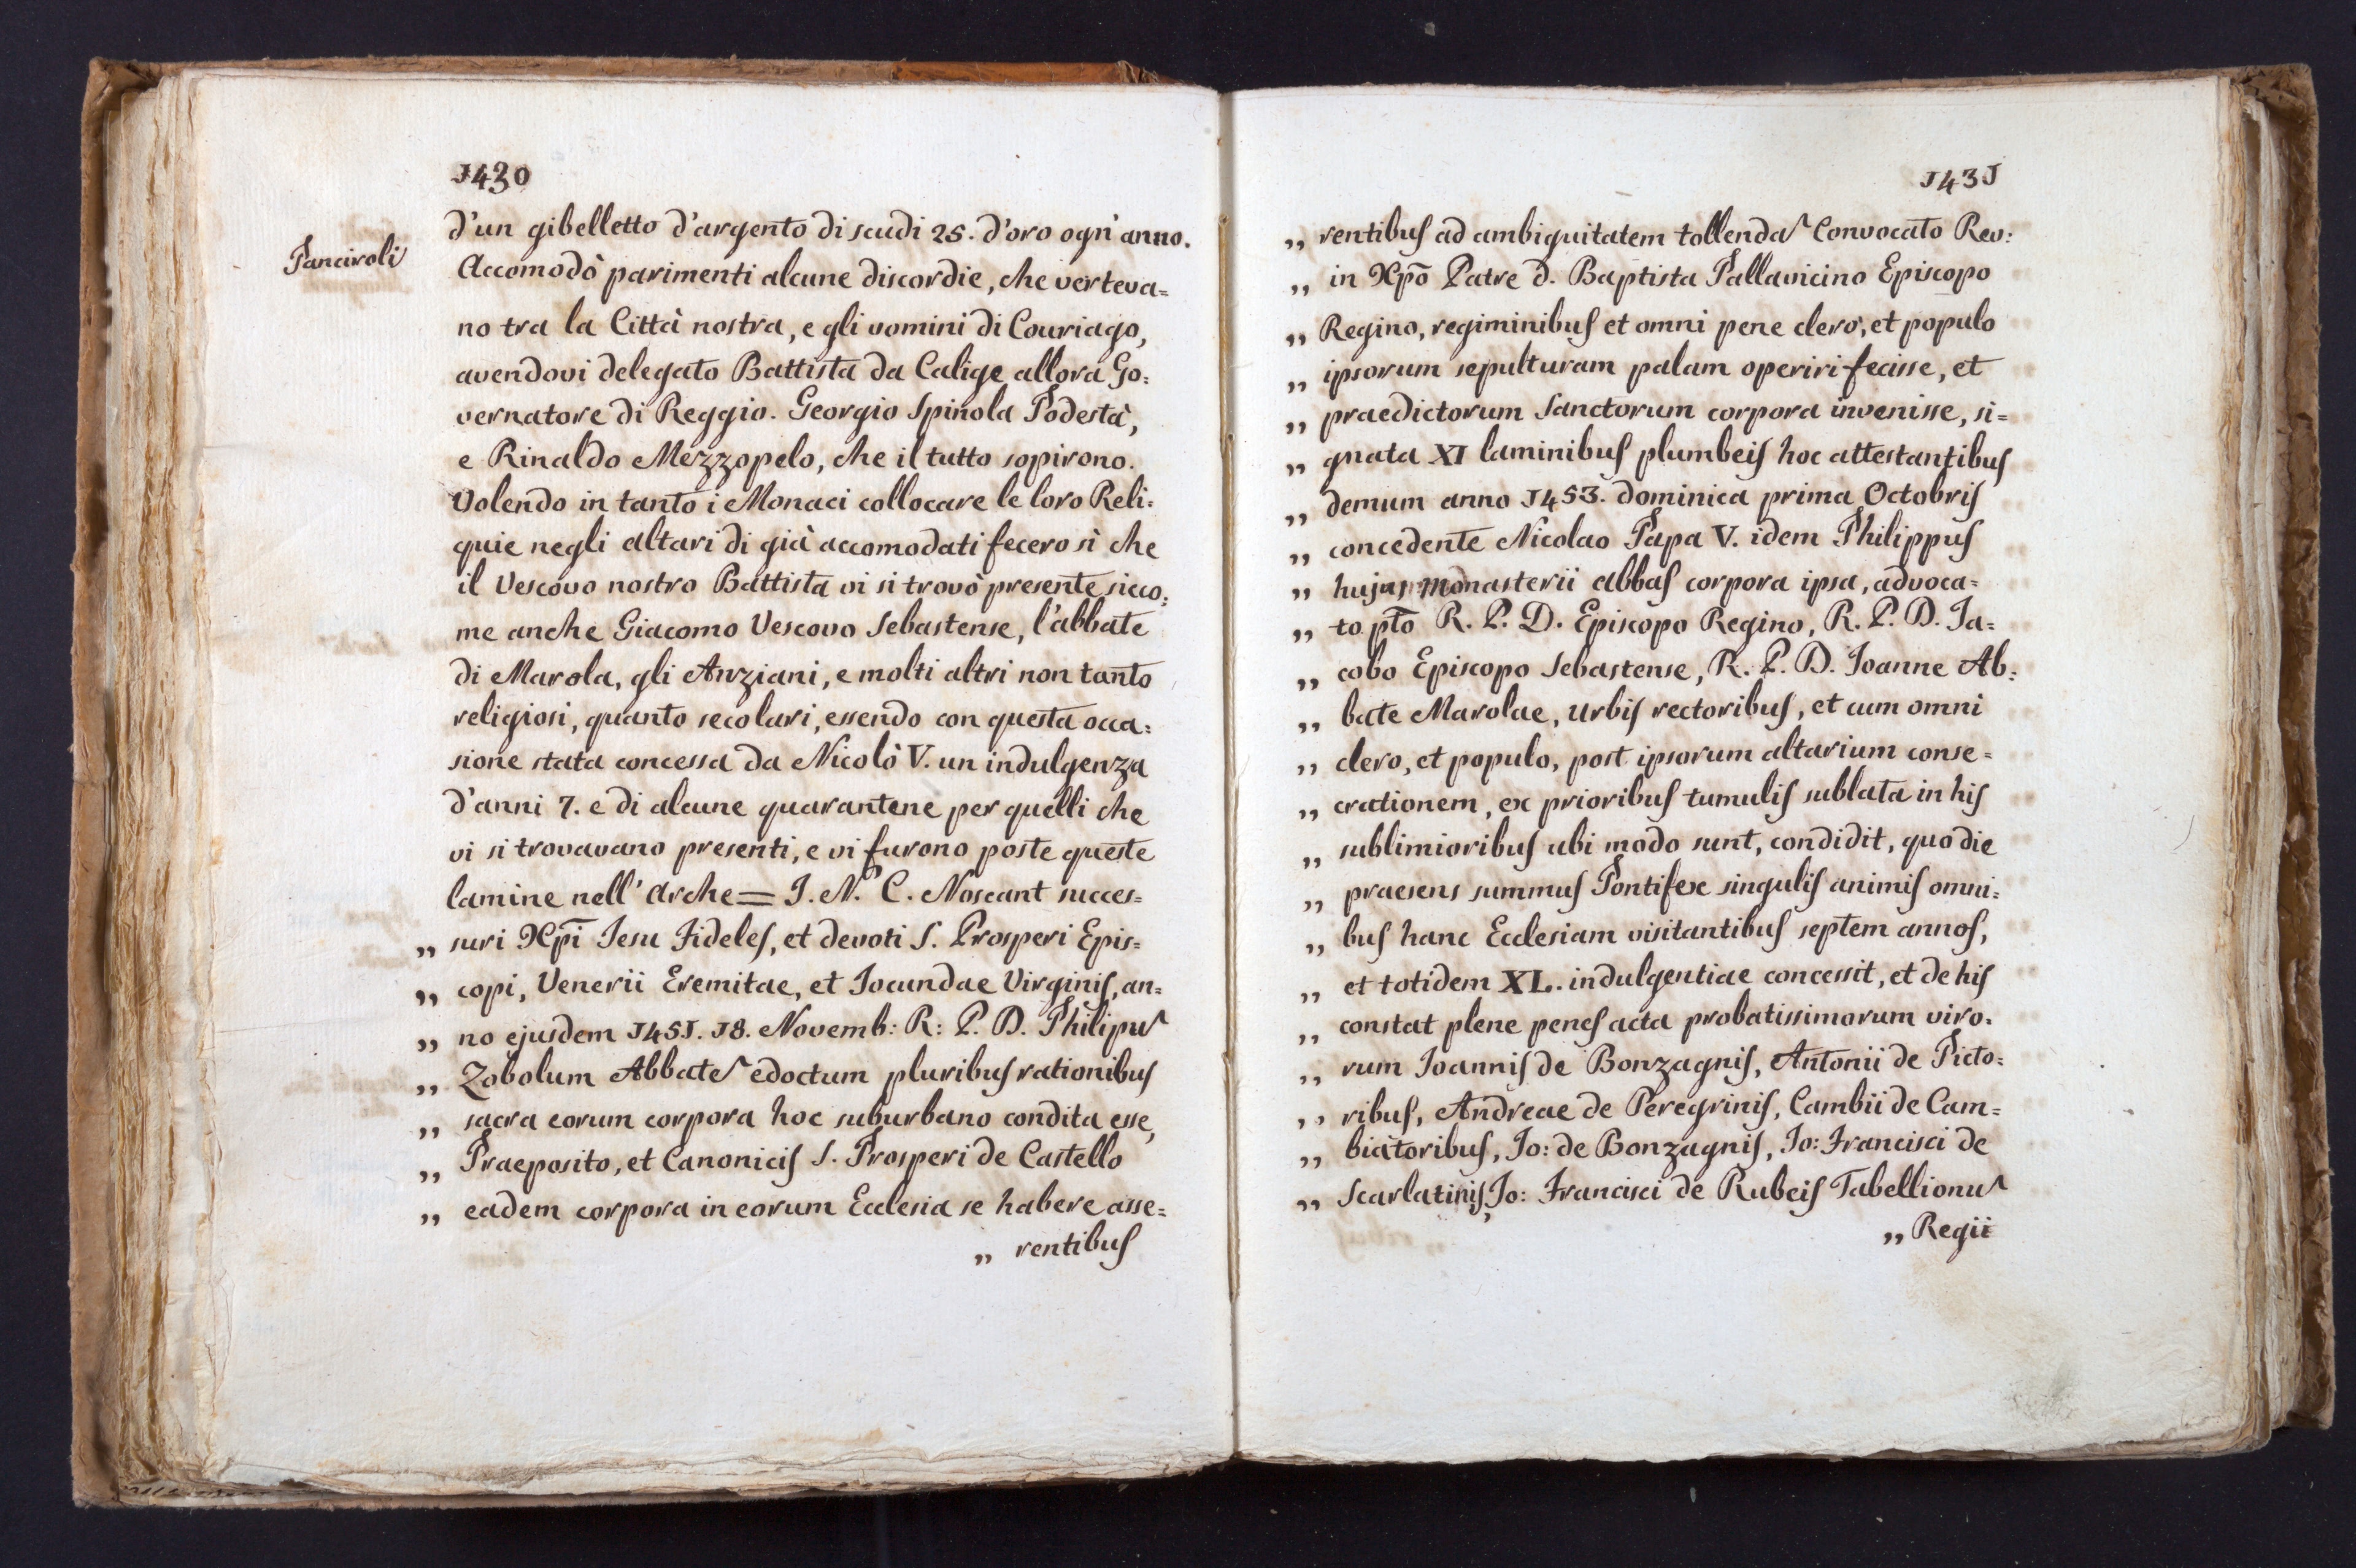 1430
Panciroli
d'un gibelletto d'argento di scudi 25. d'oro ogn'anno.
Accomodò parimenti alcune discordie, che verteva=
no tra la Città nostra, e gli uomini di Couriago,
avendovi delegato Battista da Calige allora Go=
vernatore di Reggio. Georgio Spinola Podestà,
e Rinaldo Mezzopelo, che il tutto sopirono.
Volendo in tanto i Monaci collocare le loro Reli=
quie negli altari di già accomodati fecero sì che
il Vescovo nostro Battista vi si trovò presente, sicco=
me anche Giacomo Vescovo Sebastense, l'abbate
di Marola, gli Anziani, e molti altri non tanto
religiosi, quanto secolari, essendo con questa occa=
sione stata concessa da Nicolò V. un indulgenza
d'anni 7. e di alcune quarantene per quelli che
vi si trovavano presenti, e vi furono poste queste
lamine nell' Arche = I. N. C. Noscant succes=
„ suri Xpi Iesu Fideles, et devoti S. Prosperi Epis=
„ copi, Venerii Eremitae, et Jocundae Virginis, an=
„ no ejusdem 1451. 18. Novemb: R: P. D. Philipu
„ Zobolum Abbate edoctum pluribus rationibus
„ sacra eorum corpora hoc suburbano condita esse,
„ Praeposito, et Canonicis S. Prosperi de Castello
„ eadem corpora in eorum Ecclesia se habere asse=
„ rentibus
1431
„ rentibus ad ambiguitatem tollenda Convocato Rev:
„ in Xpõ Patre d. Baptista Pallavicino Episcopo
„ Regino, regiminibus et omni pene clero, et populo
„ ipsorum sepulturam palam operiri fecisse, et
„ praedictorum Sanctorum corpora invenisse, si=
„ gnata XI laminibus plumbeis hoc attestantibus
„ demum anno 1453. dominica prima Octobris
„ concedente Nicolao Papa V. idem Philippus
„ hujus monasterii abbas corpora ipsa, advoca=
„ to ptõ R. P. D. Episcopo Regino, R. P. D. Ja=
„ cobo Episcopo Sebastense, R. P. D. Joanne Ab=
„ bate Marolae, urbis rectoribus, et cum omni
„ clero, et populo, post ipsorum altarium conse=
„ crationem, ex prioribus tumulis sublata in his
„ sublimioribus ubi modo sunt, condidit, quo die
„ praesens summus Pontifex singulis animis omni=
„ bus hanc Ecclesiam visitantibus septem annos,
„ et totidem XL. indulgentiae concessit, et de his
„ constat plene penes acta probatissimorum viro=
„ rum Joannis de Bonzagnis, Antonii de Picto=
„ ribus, Andreae de Peregrinis, Cambii de Cam=
„ biatoribus, Jo: de Bonzagnis, Jo: Francisci de
„ Scarlatinis, Jo: Francisci de Rubeis Tabellionu
„ Regii